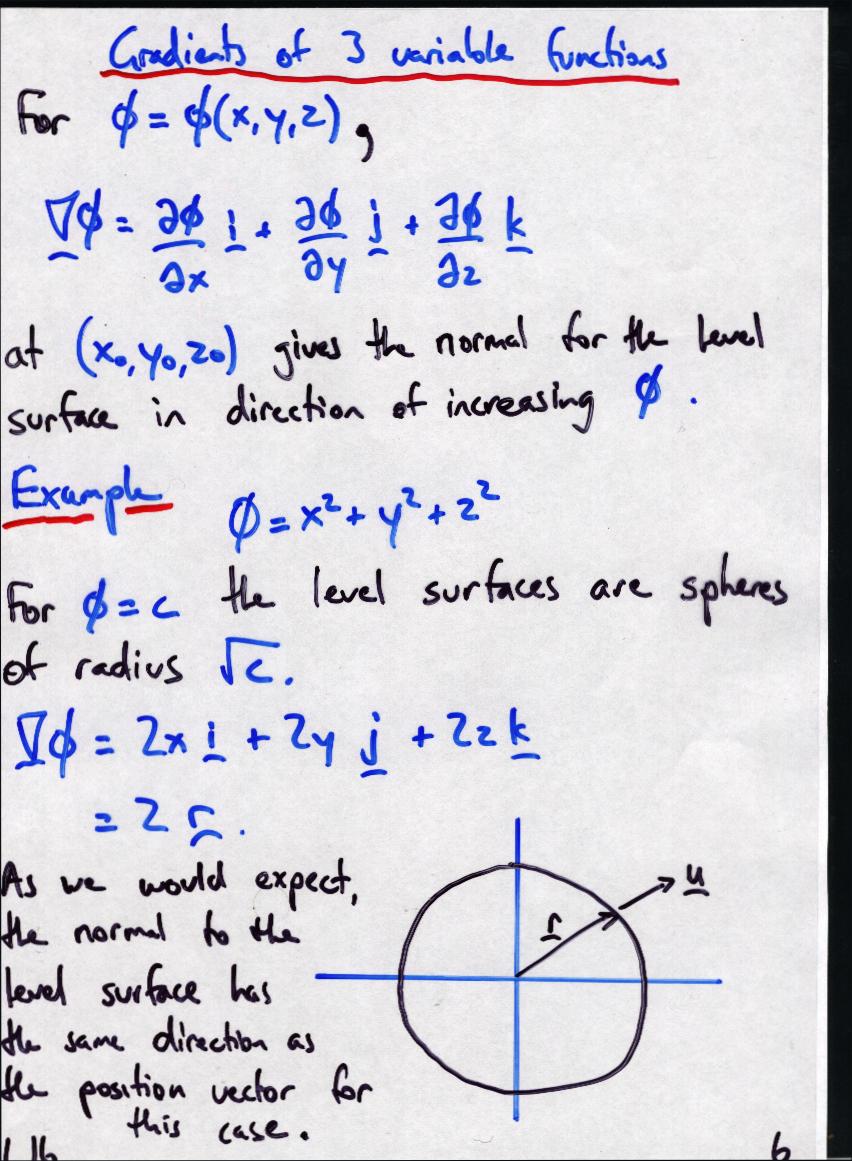 Gradients of 3 variable functions
For ϕ = ϕ(x, y, z),
∇ϕ = ∂ϕ/∂x i + ∂ϕ/∂y j + ∂ϕ/∂z k
at (x₀, y₀, z₀) gives the normal for the level
surface in direction of increasing ϕ.
Example ϕ = x² + y² + z²
For ϕ = c the level surfaces are spheres
of radius √c.
∇ϕ = 2x i + 2y j + 2z k
= 2 r.
As we would expect,
the normal to the
level surface has
the same direction as
the position vector for
this case.
r
u
6